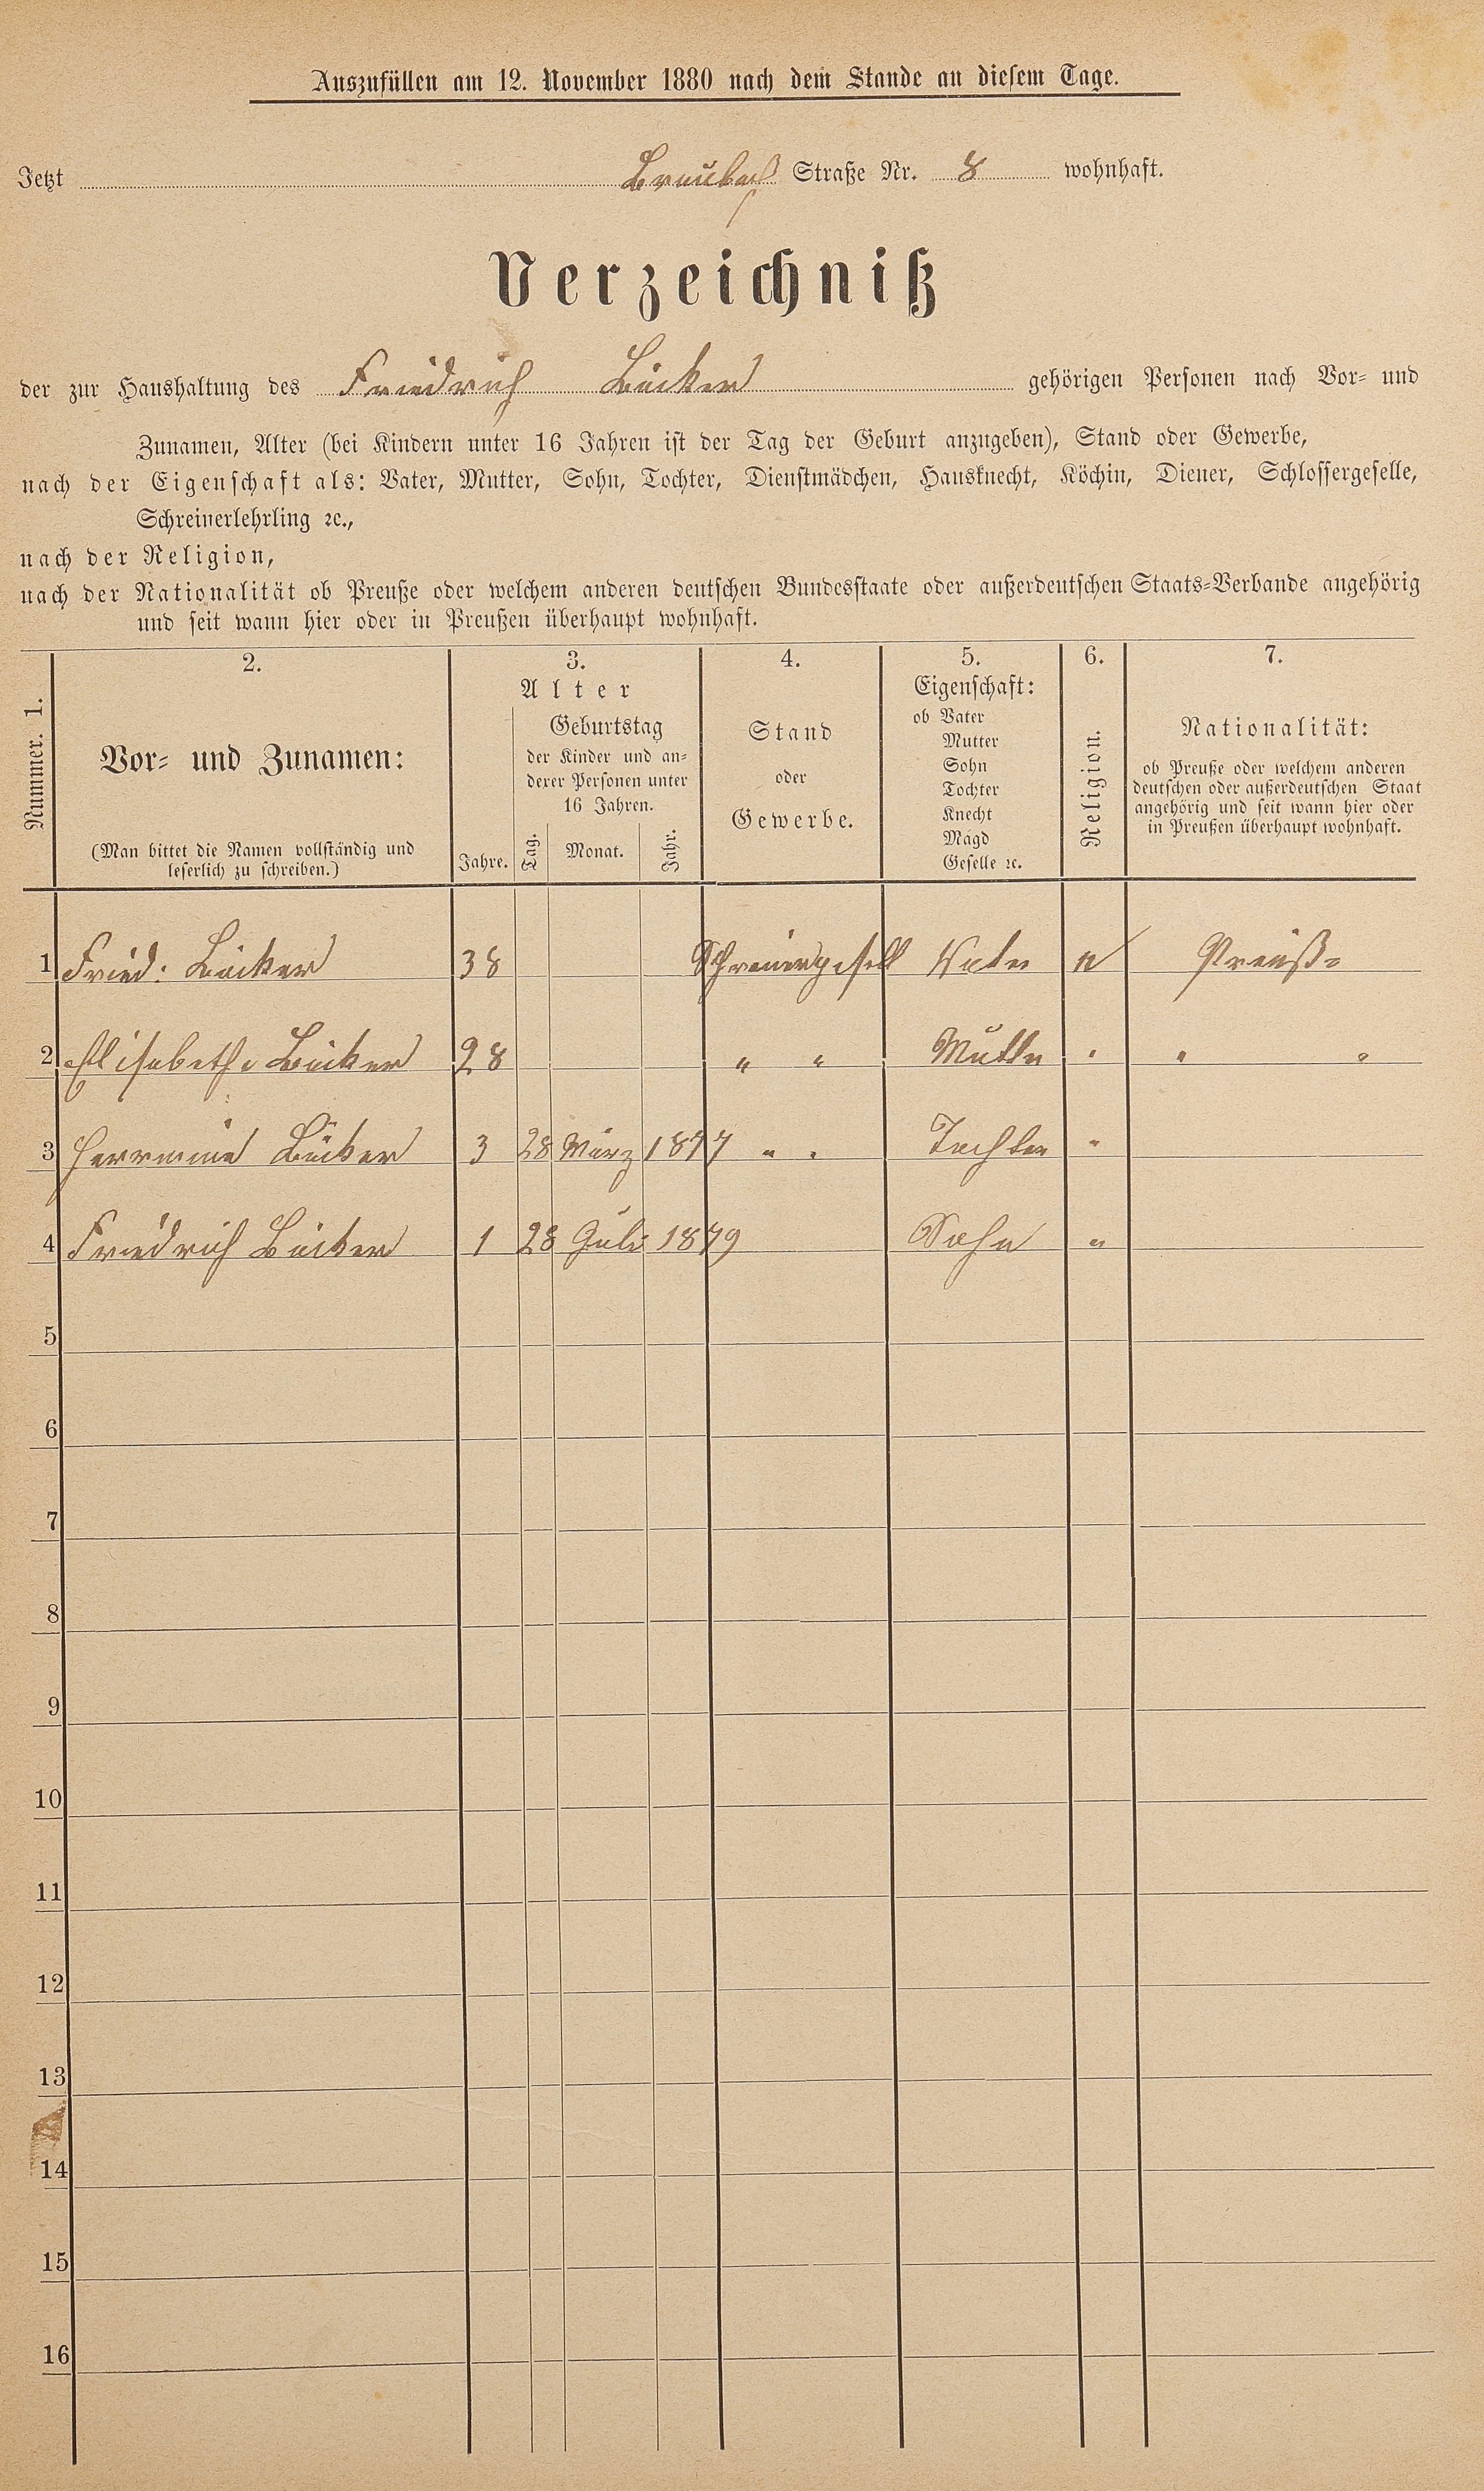 Auszufüllen am 12. November 1880 nach dem Stande an diesem Tage.
Jetzt Braubach Straße Nr. 8 wohnhaft.
Verzeichniß
der zur Haushaltung des Friedrich Bücker gehörigen Personen nach Vor- und
Zunamen, Alter (bei Kindern unter 16 Jahren ist der Tag der Geburt anzugeben), Stand oder Gewerbe,
nach der Eigenschaft als: Vater, Mutter, Sohn, Tochter, Dienstmädchen, Hausknecht, Köchin, Diener, Schlossergeselle,
Schreinerlehrling ꝛc.,
nach der Religion,
nach der Nationalität ob Preuße oder welchem anderen deutschen Bundesstaate oder außerdeutschen Staats-Verbande angehörig
und seit wann hier oder in Preußen überhaupt wohnhaft.
Nummer. 1.
2.
Vor- und Zunamen:
(Man bittet die Namen vollständig und
leserlich zu schreiben.)
3.
Alter
Geburtstag
der Kinder und an-
derer Personen unter
16 Jahren.
Jahre. Tag. Monat. Jahr.
4.
Stand
oder
Gewerbe.
5.
Eigenschaft:
ob Vater
Mutter
Sohn
Tochter
Knecht
Magd
Geselle ꝛc.
6.
Religion.
7.
Nationalität:
ob Preuße oder welchem anderen
deutschen oder außerdeutschen Staat
angehörig und seit wann hier oder
in Preußen überhaupt wohnhaft.
1 Fried: Bücker 38 Schreinergesell Vater Preuße
2 Elisabethe Bücker 28 " " Mutter " " "
3 Hermine Bücker 3 28 März 1877 " " Tochter "
4 Friedrich Bücker 1 28 Juli 1879 Sohn "
5
6
7
8
9
10
11
12
13
14
15
16